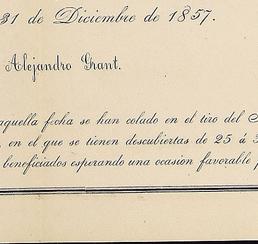 31 de Diciembre de 1857.
Alejandro Grant.
aquella fecha se han colado en el tiro del
, en el que se tienen descubiertas de 25 á
beneficiados esperando una ocasion favorable